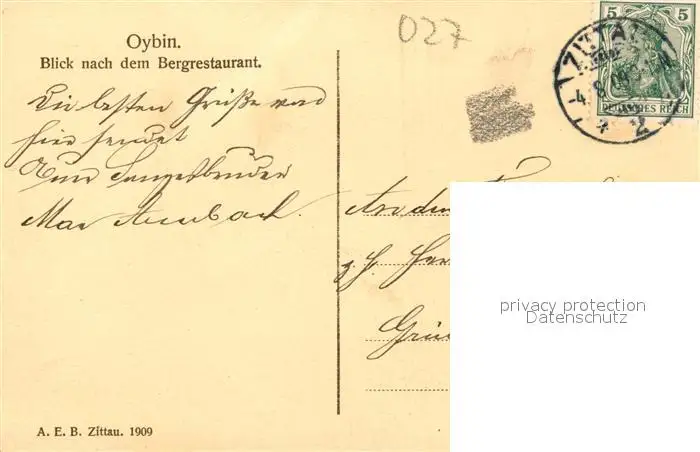 Oybin.
Blick nach dem Bergrestaurant.
027
ZITTAU
5 5
DEUTSCHES REICH
-4.8.09
* 2
Die besten Grüße von
hier sendet
Euer Sangesbruder
Max
An den
z. H. Her
privacy protection
Datenschutz
A. E. B. Zittau. 1909